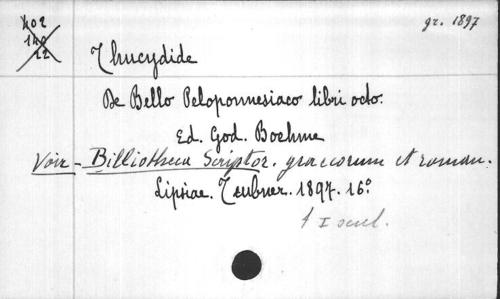 402
140
22
gr. 1897
Thucydide
De Bello Peloponnesiaco libri octo.
Ed. God. Boehme
Voir - Billiotheca Scriptor. graecorum et roman.
Lipsiae. Teubner. 1897. 16°
t I seul.